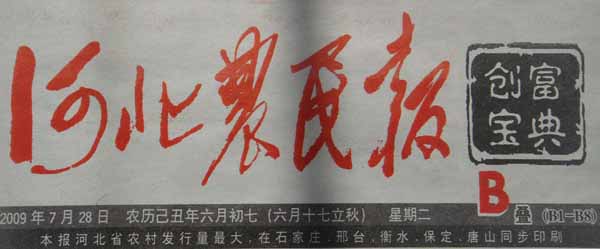 河北農民报
创富
宝典
B
2009年7月28日 农历己丑年六月初七(六月十七立秋) 星期二 叠(B1—B8)
本报河北省农村发行量最大,在石家庄、邢台、衡水、保定、唐山同步印刷